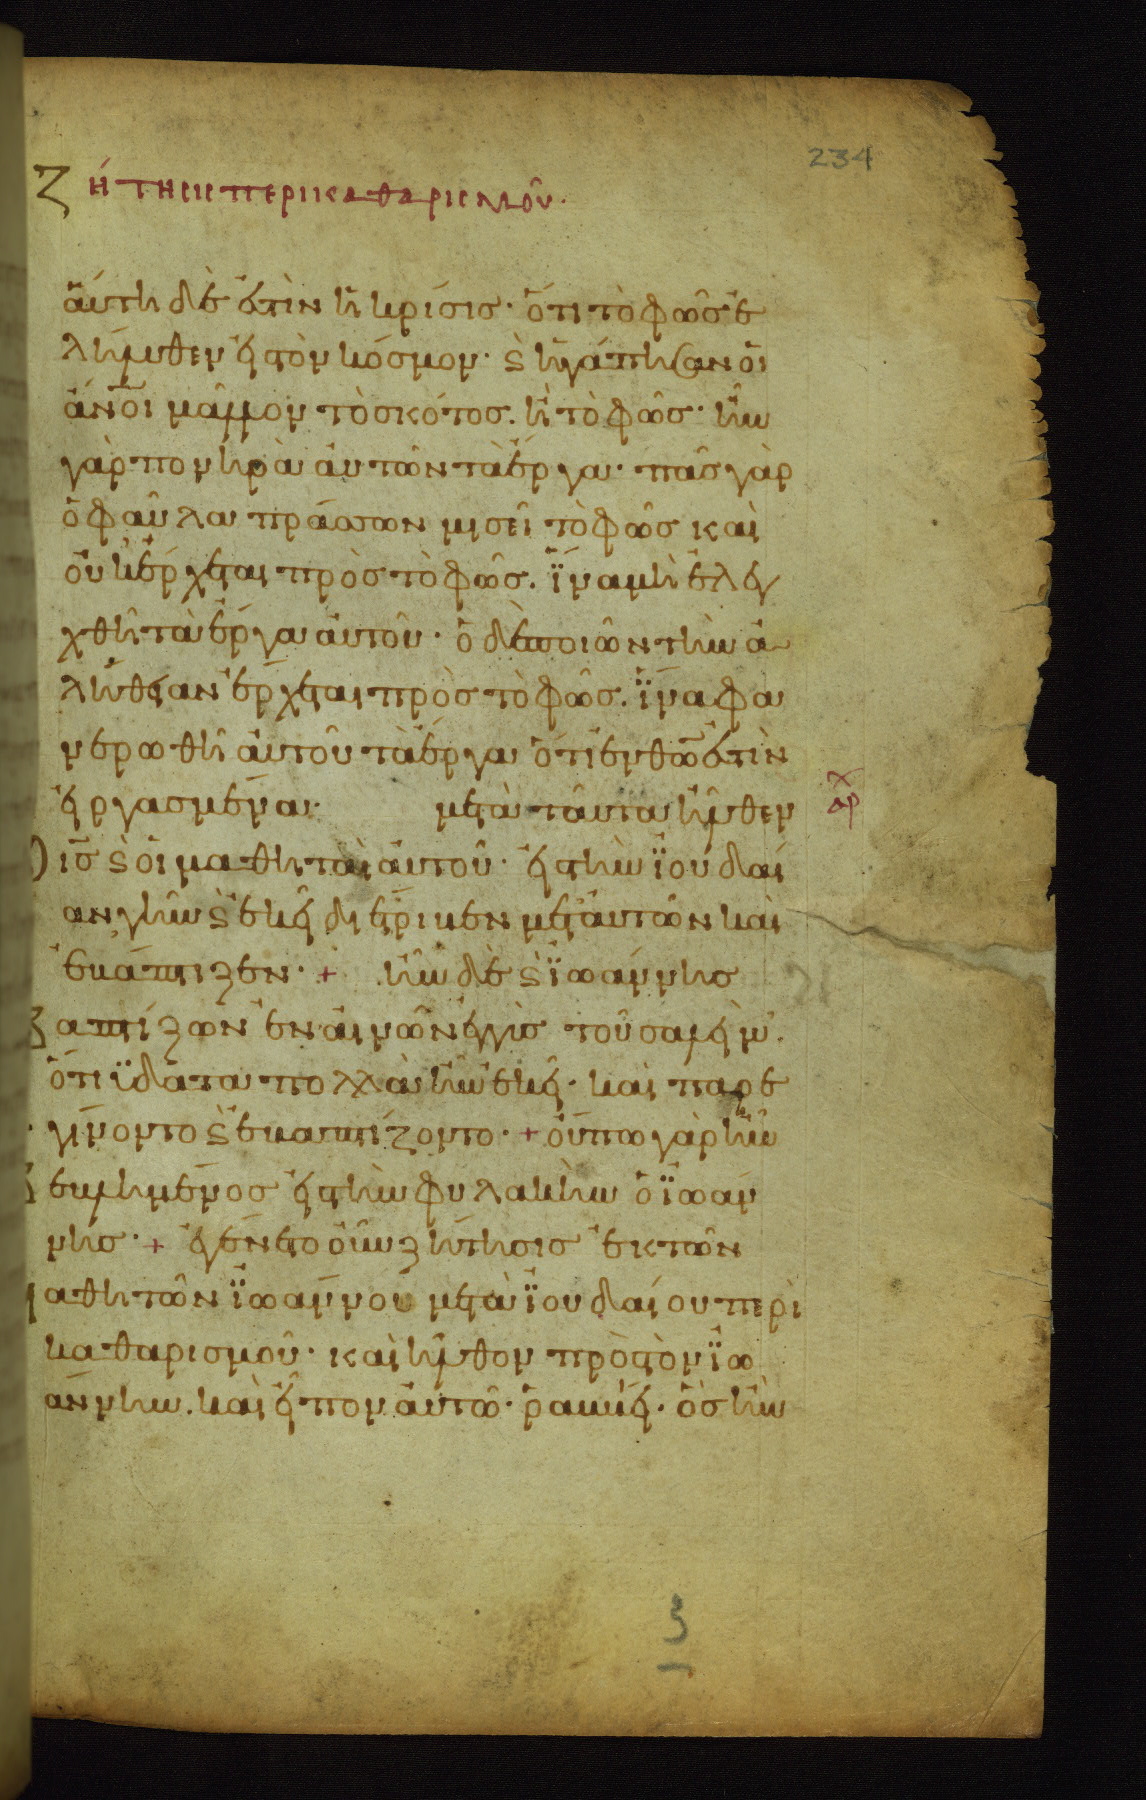 234
Ζήτησις περὶ καθαρισμοῦ.
αὕτη δέ ἐστιν ἡ κρίσις· ὅτι τὸ φῶς ἐ
λήλυθεν εἰς τὸν κόσμον· ϛ ἠγάπησαν οἱ
ἄνοι μᾶλλον τὸ σκότος. ἢ τὸ φῶς· ἦν
γὰρ πονηρὰ αὐτῶν τὰ ἔργα· πᾶς γὰρ
ὁ φαῦλα πράσσων μισεῖ τὸ φῶς καὶ
οὐκ ἔρχεται πρὸς τὸ φῶς. ἵνα μὴ ἐλεγ
χθῇ τὰ ἔργα αὐτοῦ· ὁ δὲ ποιῶν τὴν ἀ
λήθειαν ἔρχεται πρὸς τὸ φῶς. ἵνα φα
νερωθῇ αὐτοῦ τὰ ἔργα ὅτι ἐν θω ἐστὶν
εἰργασμένα· μετὰ ταῦτα ἦλθεν
αρχ
ὁ ις ϛ οἱ μαθηταὶ αὐτοῦ· εἰς τὴν ἰουδαί
αν γῆν ϛ ἐκεῖ διέτριβεν μετ αὐτῶν καὶ
ἐβάπτιζεν· + ἦν δὲ ϛ ἰωάννης
βαπτίζων ἐν αἰνὼν ἐγγὺς τοῦ σαλείμ.
ὅτι ὕδατα πολλὰ ἦν ἐκεῖ· καὶ παρε
γίνοντο ϛ ἐβαπτίζοντο· + οὔπω γὰρ ἦν
βεβλημένος εἰς τὴν φυλακὴν ὁ ἰωάν
νης· + ἐγένετο οὖν ζήτησις ἐκ τῶν
μαθητῶν ἰωάννου μετὰ ἰουδαίου περὶ
καθαρισμοῦ· καὶ ἦλθον πρὸς τὸν ἰω
άννην. καὶ εἶπον αὐτῶ· ῥαββεί· ὃς ἦν